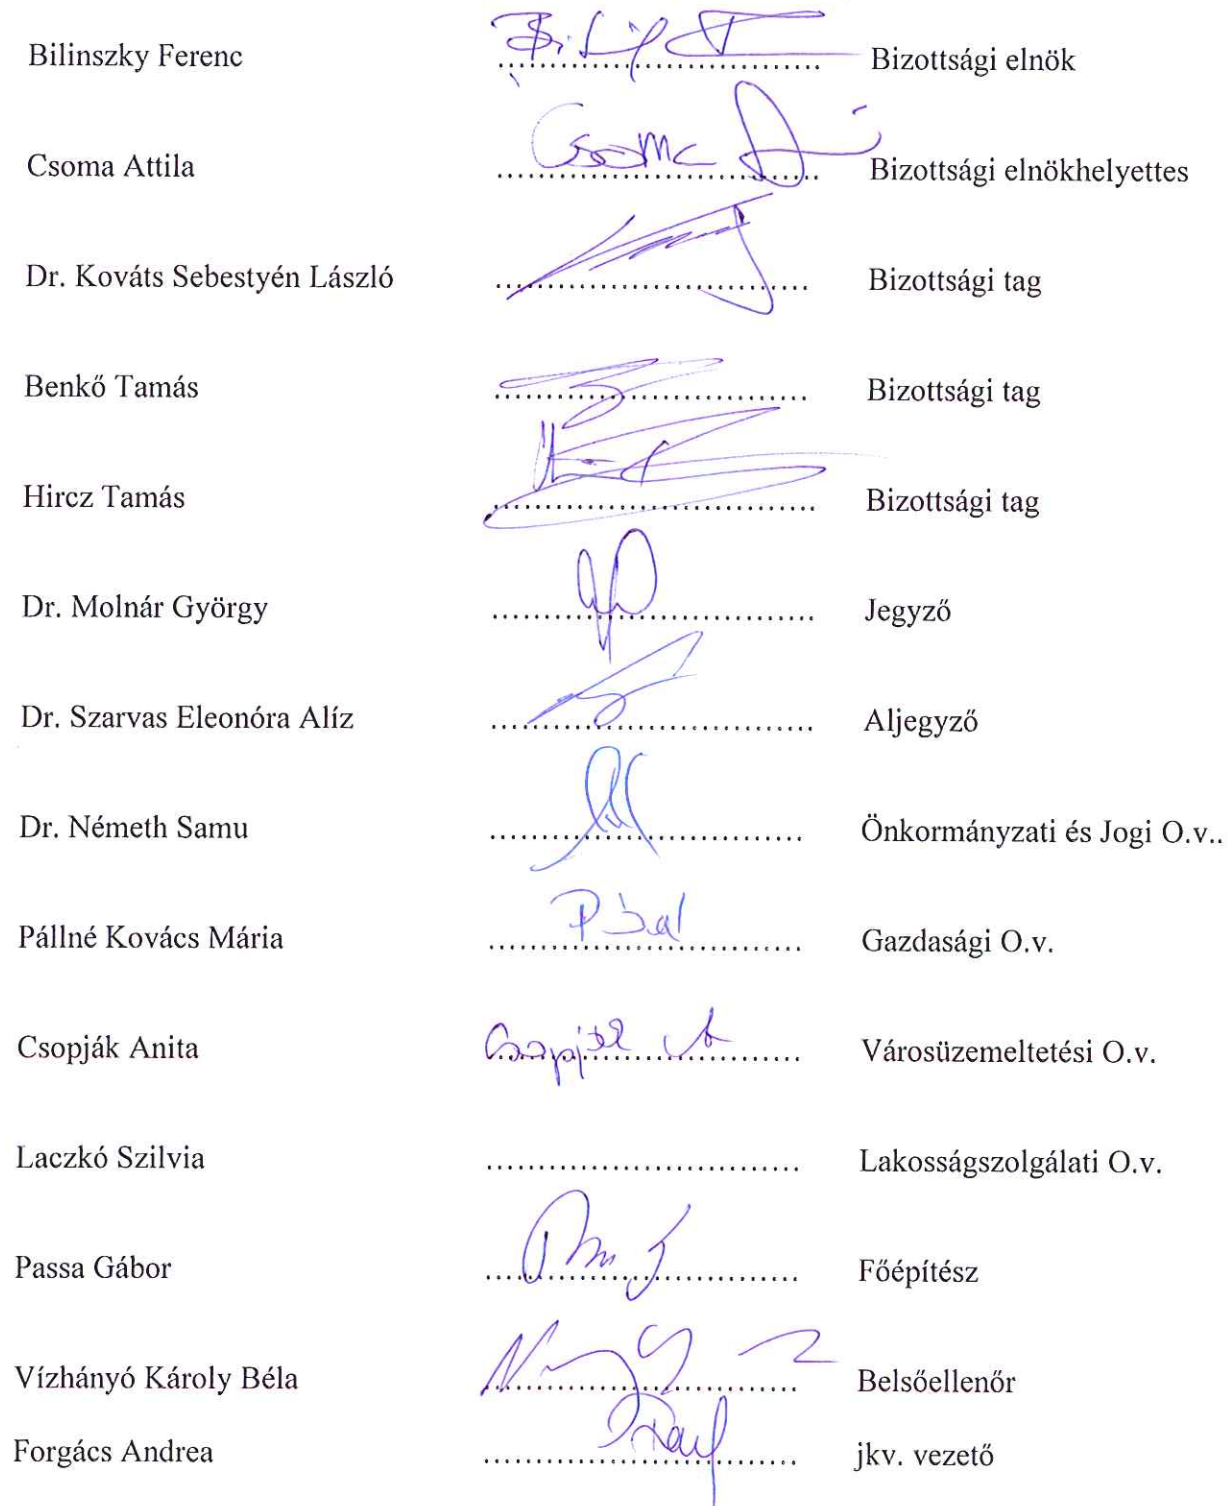 Bilinszky Ferenc .............................. Bizottsági elnök
Csoma Attila Csoma A .............................. Bizottsági elnökhelyettes
Dr. Kováts Sebestyén László .............................. Bizottsági tag
Benkő Tamás .............................. Bizottsági tag
Hircz Tamás .............................. Bizottsági tag
Dr. Molnár György .............................. Jegyző
Dr. Szarvas Eleonóra Alíz .............................. Aljegyző
Dr. Németh Samu .............................. Önkormányzati és Jogi O.v..
Pállné Kovács Mária .............................. Gazdasági O.v.
Csopják Anita Csopják A .............................. Városüzemeltetési O.v.
Laczkó Szilvia .............................. Lakosságszolgálati O.v.
Passa Gábor .............................. Főépítész
Vízhányó Károly Béla .............................. Belsőellenőr
Forgács Andrea .............................. jkv. vezető